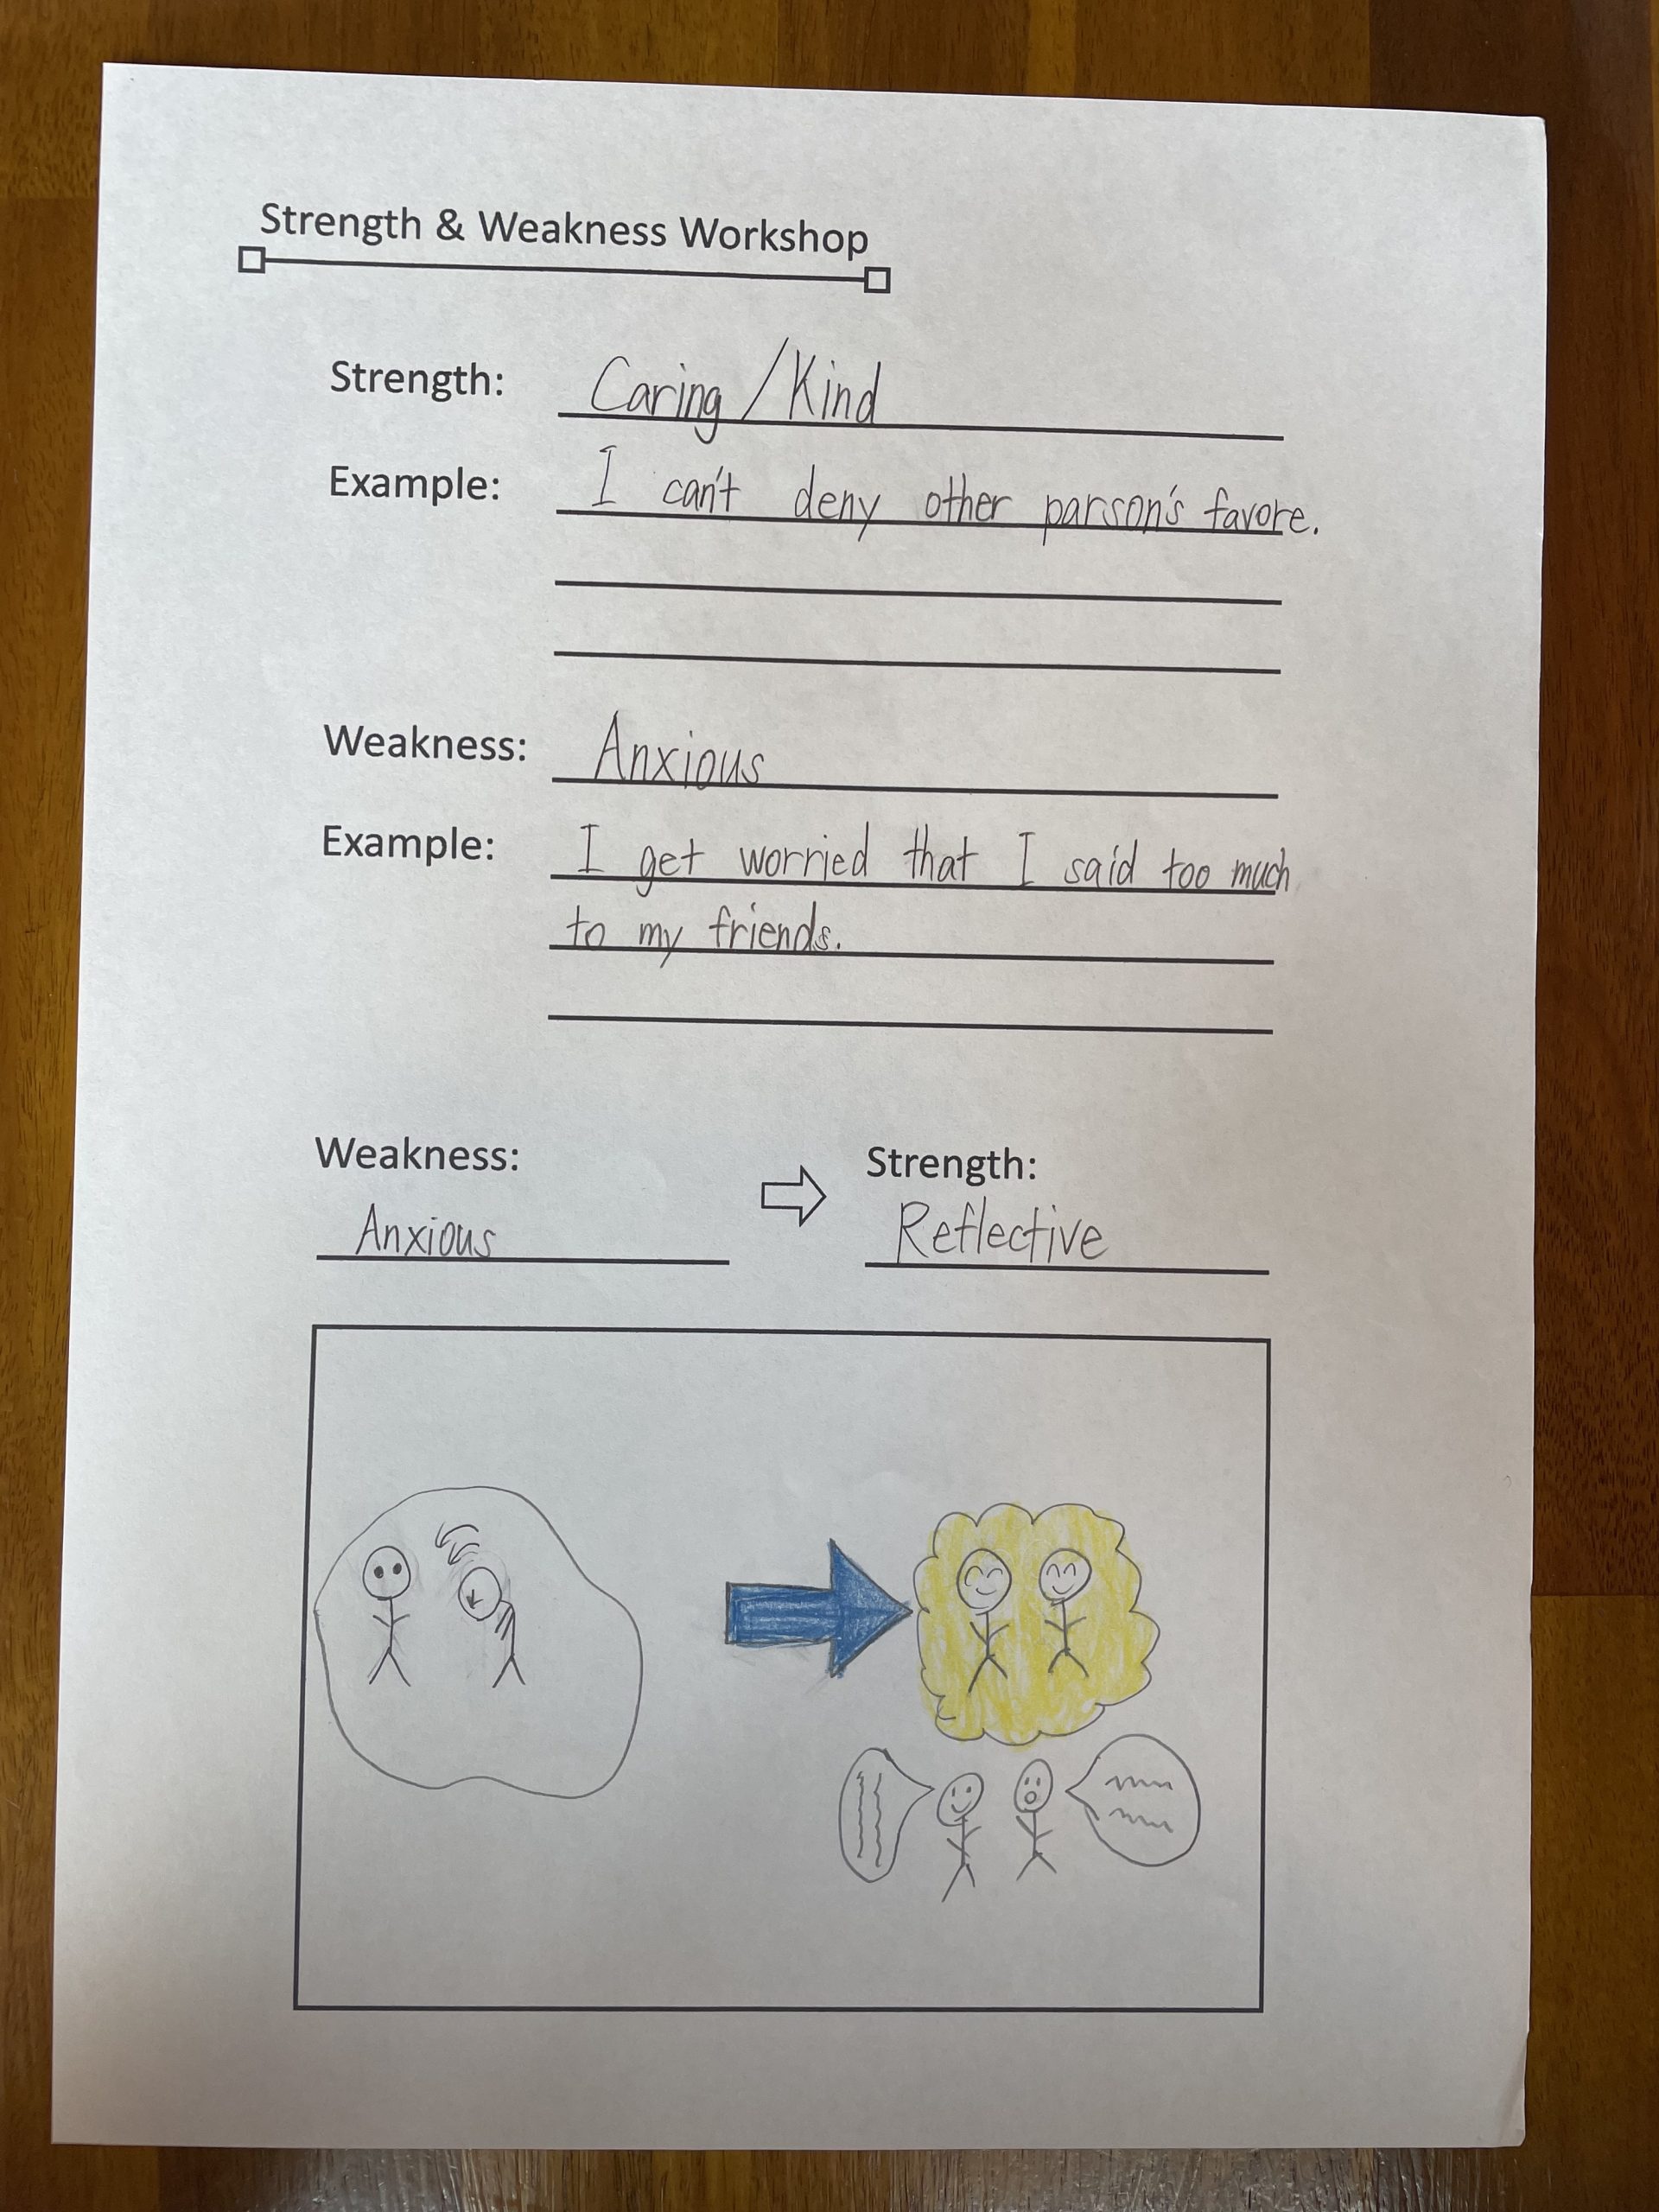 Strength & Weakness Workshop
Strength: Caring/Kind
Example: I can't deny other parson's favore.
Weakness: Anxious
Example: I get worried that I said too much
to my friends.
Weakness:
Strength:
Anxious
Reflective